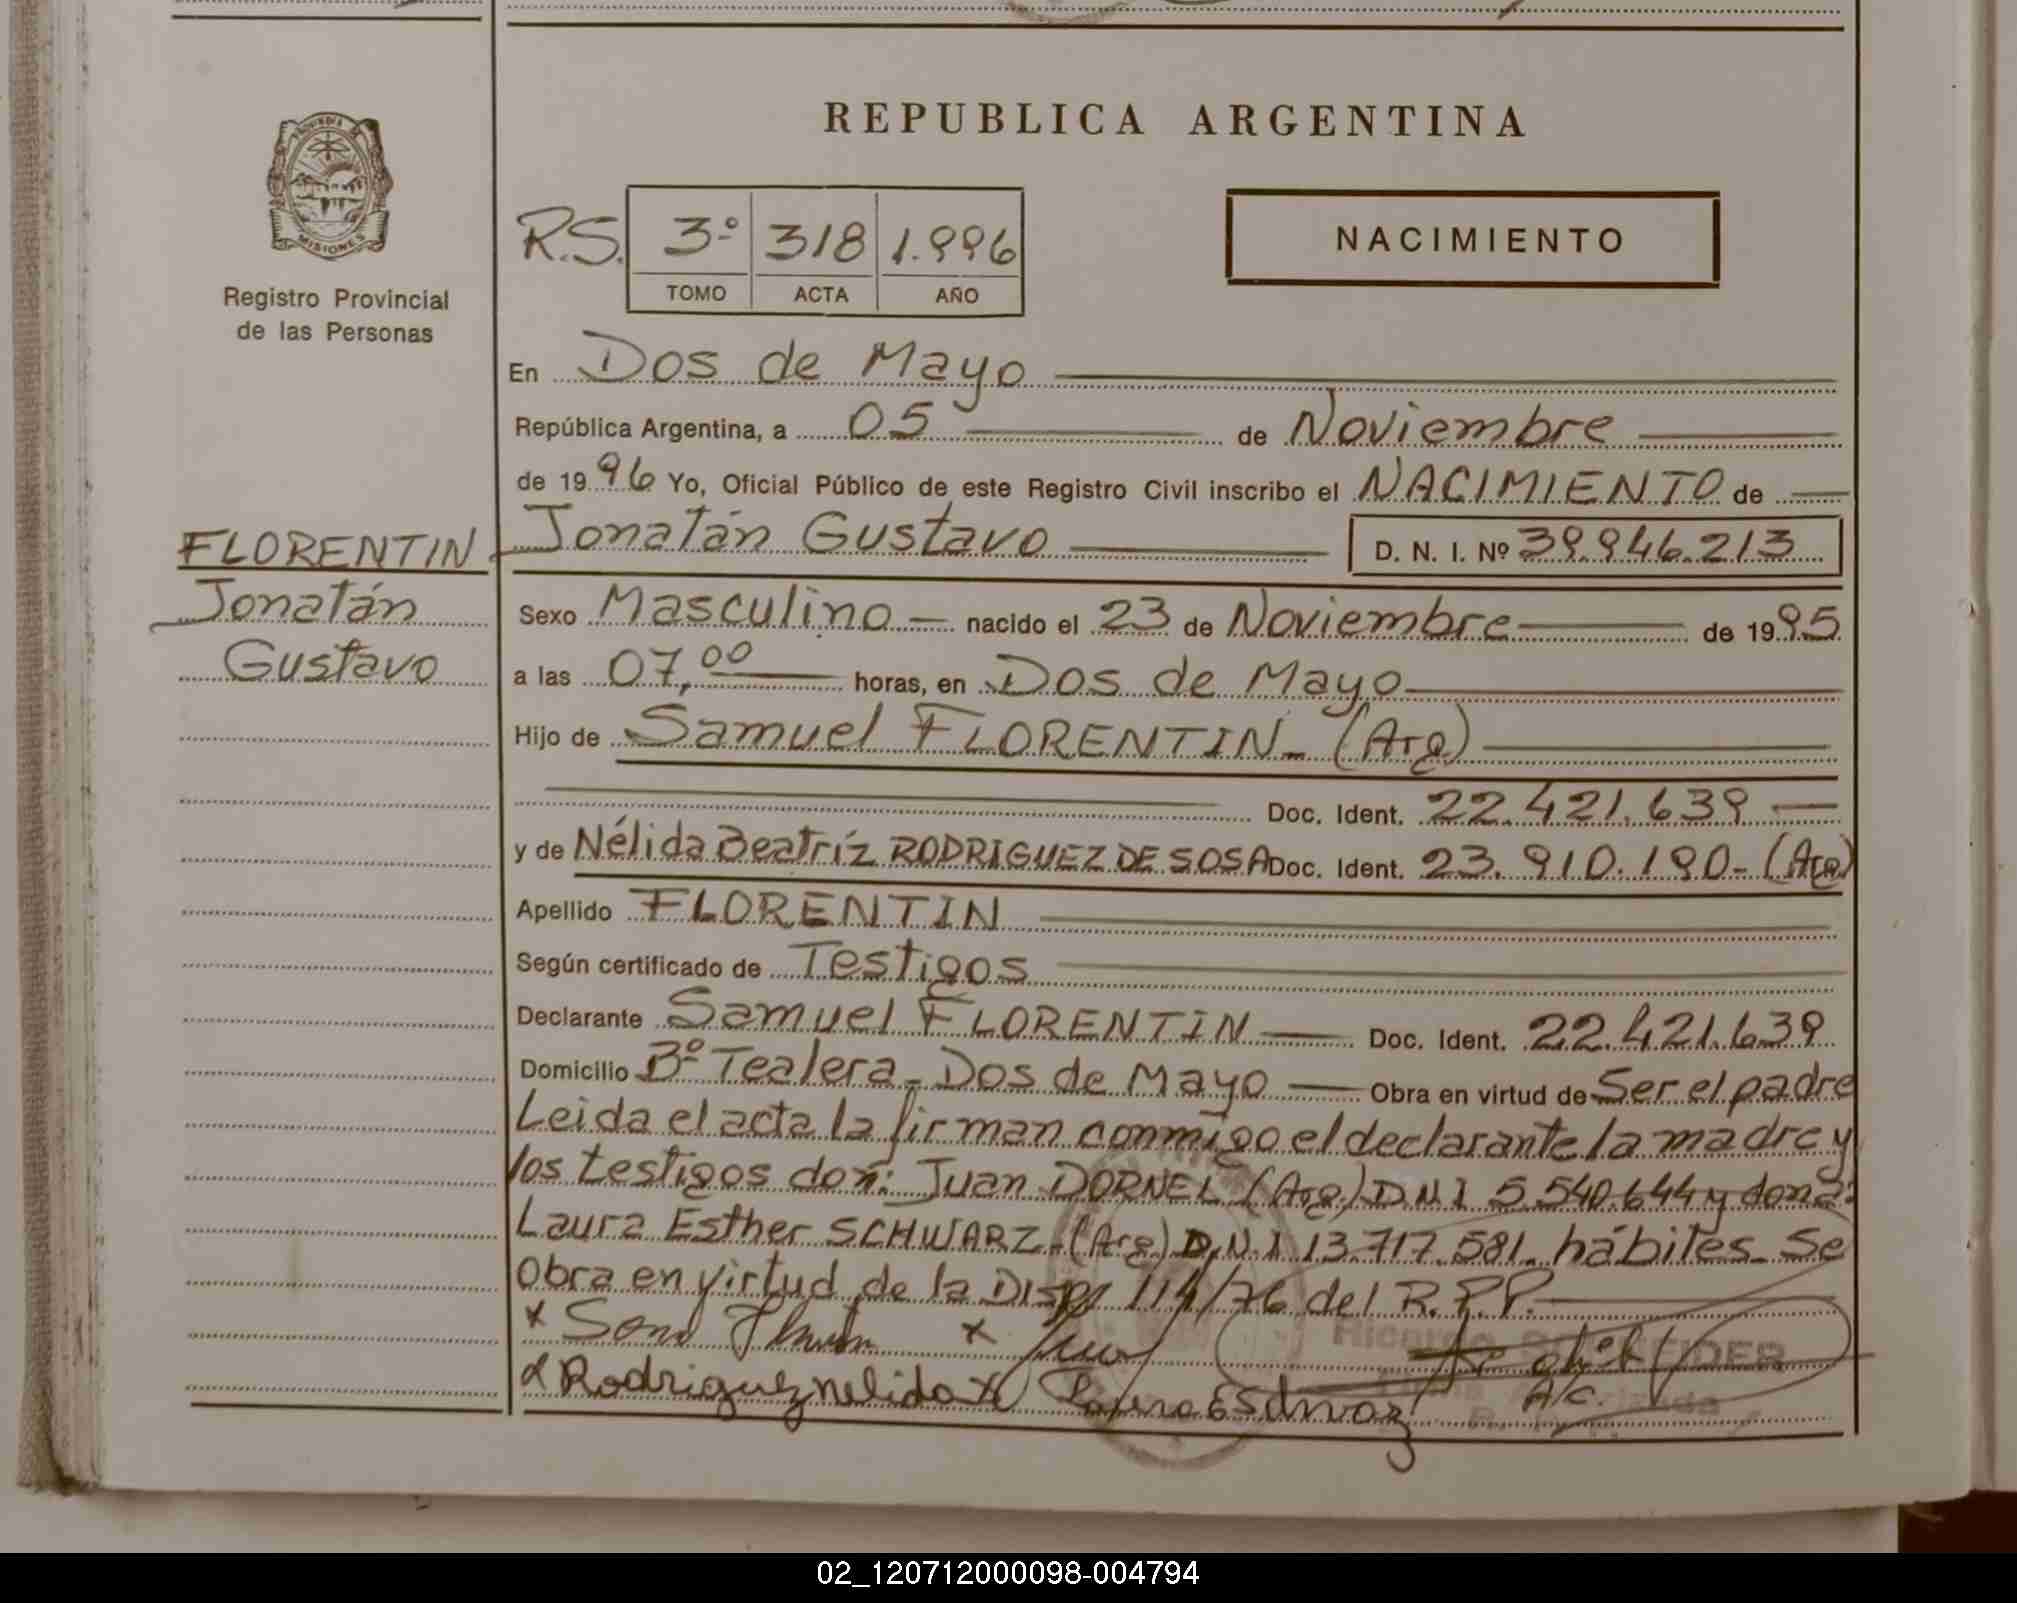 REPUBLICA ARGENTINA
PROVINCIA DE MISIONES
Registro Provincial
de las Personas
R.S. 3º 318 1.996
TOMO ACTA AÑO
NACIMIENTO
En Dos de Mayo
República Argentina, a 05 de Noviembre
de 1996 Yo, Oficial Público de este Registro Civil inscribo el NACIMIENTO de
FLORENTIN
Jonatán
Gustavo
Jonatán Gustavo D. N. I. Nº 39.946.213
Sexo Masculino nacido el 23 de Noviembre de 1995
a las 07,00 horas, en Dos de Mayo
Hijo de Samuel FLORENTIN (Arg)
Doc. Ident. 22.421.639
y de Nélida Beatríz RODRIGUEZ DE SOSA Doc. Ident. 23.910.190- (Arg)
Apellido FLORENTIN
Según certificado de Testigos
Declarante Samuel FLORENTIN Doc. Ident. 22.421.639
Domicilio Bº Tealera - Dos de Mayo Obra en virtud de Ser el padre
Leida el acta la firman conmigo el declarante la madre y
los testigos don: Juan DORNEL (Arg) D.N.I 5.540.644 y doña:
Laura Esther SCHWARZ - (Arg) D.N.I 13.717.581. hábiles - Se
Obra en virtud de la Disp 114/76 del R.P.P.
Ricardo SCHNEIDER
Rodriguez nelida
A/c.
02_120712000098-004794